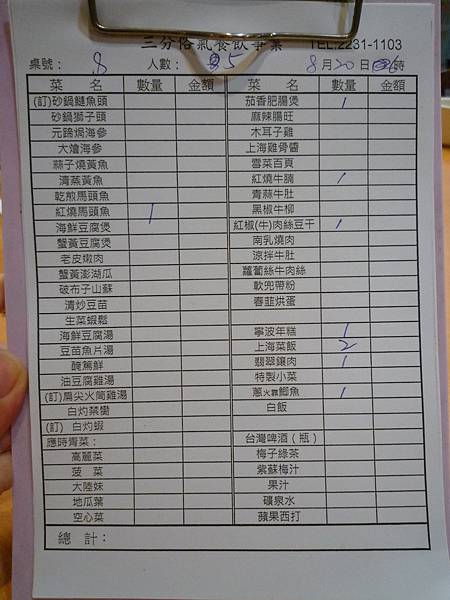 三分俗氣餐飲事業 TEL:2231-1103
桌號： 8 人數： 5 8月20日 時
菜 名 數量 金額 菜 名 數量 金額
(訂)砂鍋鰱魚頭 茄香肥腸煲 1
砂鍋獅子頭 麻辣腸旺
元蹄焗海參 木耳子雞
大燴海參 上海雞骨醬
蒜子燒黃魚 雪菜百頁
清蒸黃魚 紅燒牛腩 1
乾煎馬頭魚 青蒜牛肚
紅燒馬頭魚 1 黑椒牛柳
海鮮豆腐煲 紅椒(牛)肉絲豆干 1
蟹黃豆腐煲 南乳燒肉
老皮嫩肉 涼拌牛肚
蟹黃澎湖瓜 蘿蔔絲牛肉絲
破布子山蘇 軟兜帶粉
清炒豆苗 春韮烘蛋
生菜蝦鬆
海鮮豆腐湯 寧波年糕 1
豆苗魚片湯 上海菜飯 2
醃篤鮮 翡翠鑲肉 1
油豆腐雞湯 特製小菜
(訂)扁尖火筒雞湯 蔥火靠鯽魚 1
白灼禁臠 白飯
(訂) 白灼蝦
應時青菜： 台灣啤酒（瓶）
高麗菜 梅子綠茶
菠 菜 紫蘇梅汁
大陸妹 果汁
地瓜葉 礦泉水
空心菜 蘋果西打
總 計：